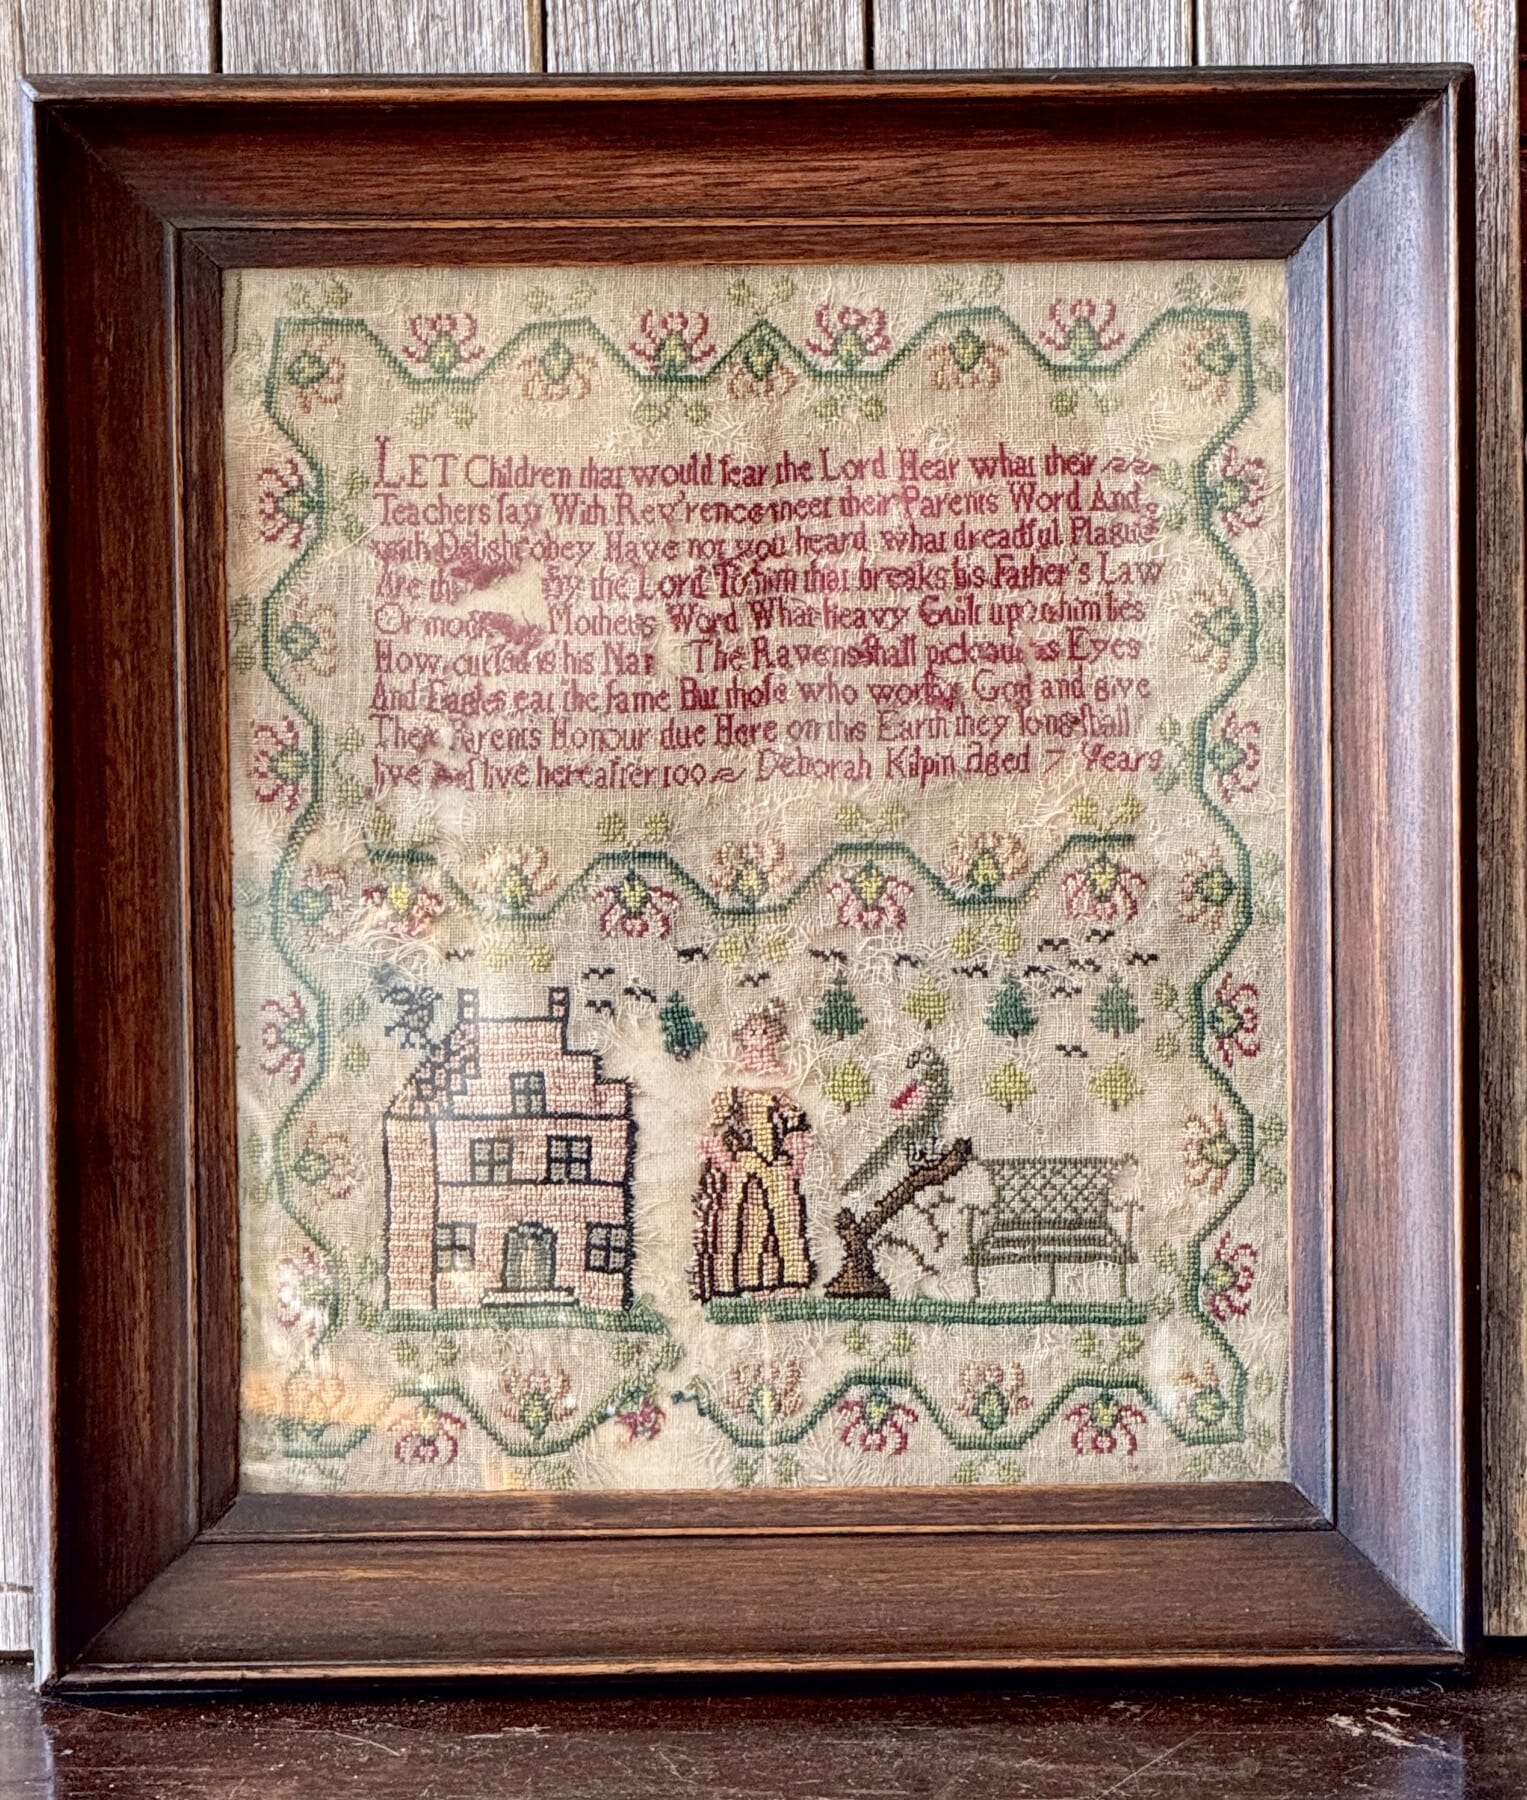 LET Children that would fear the Lord Hear what their
Teachers ſay With Rev'rence meet their Parents Word And
with Delight obey Have not you heard what dreadful Plague
Are by the Lord To him that breaks his Father's Law
Or Mother's Word What heavy Guilt upon him lies
How curſed is his The Ravens ſhall pick out Eyes
And Eagles eat the ſame But thoſe who worſhip God and give
Parents Honour due Here on this Earth they long ſhall
live live hereafter 100 Deborah Kilpin Aged 7 Years